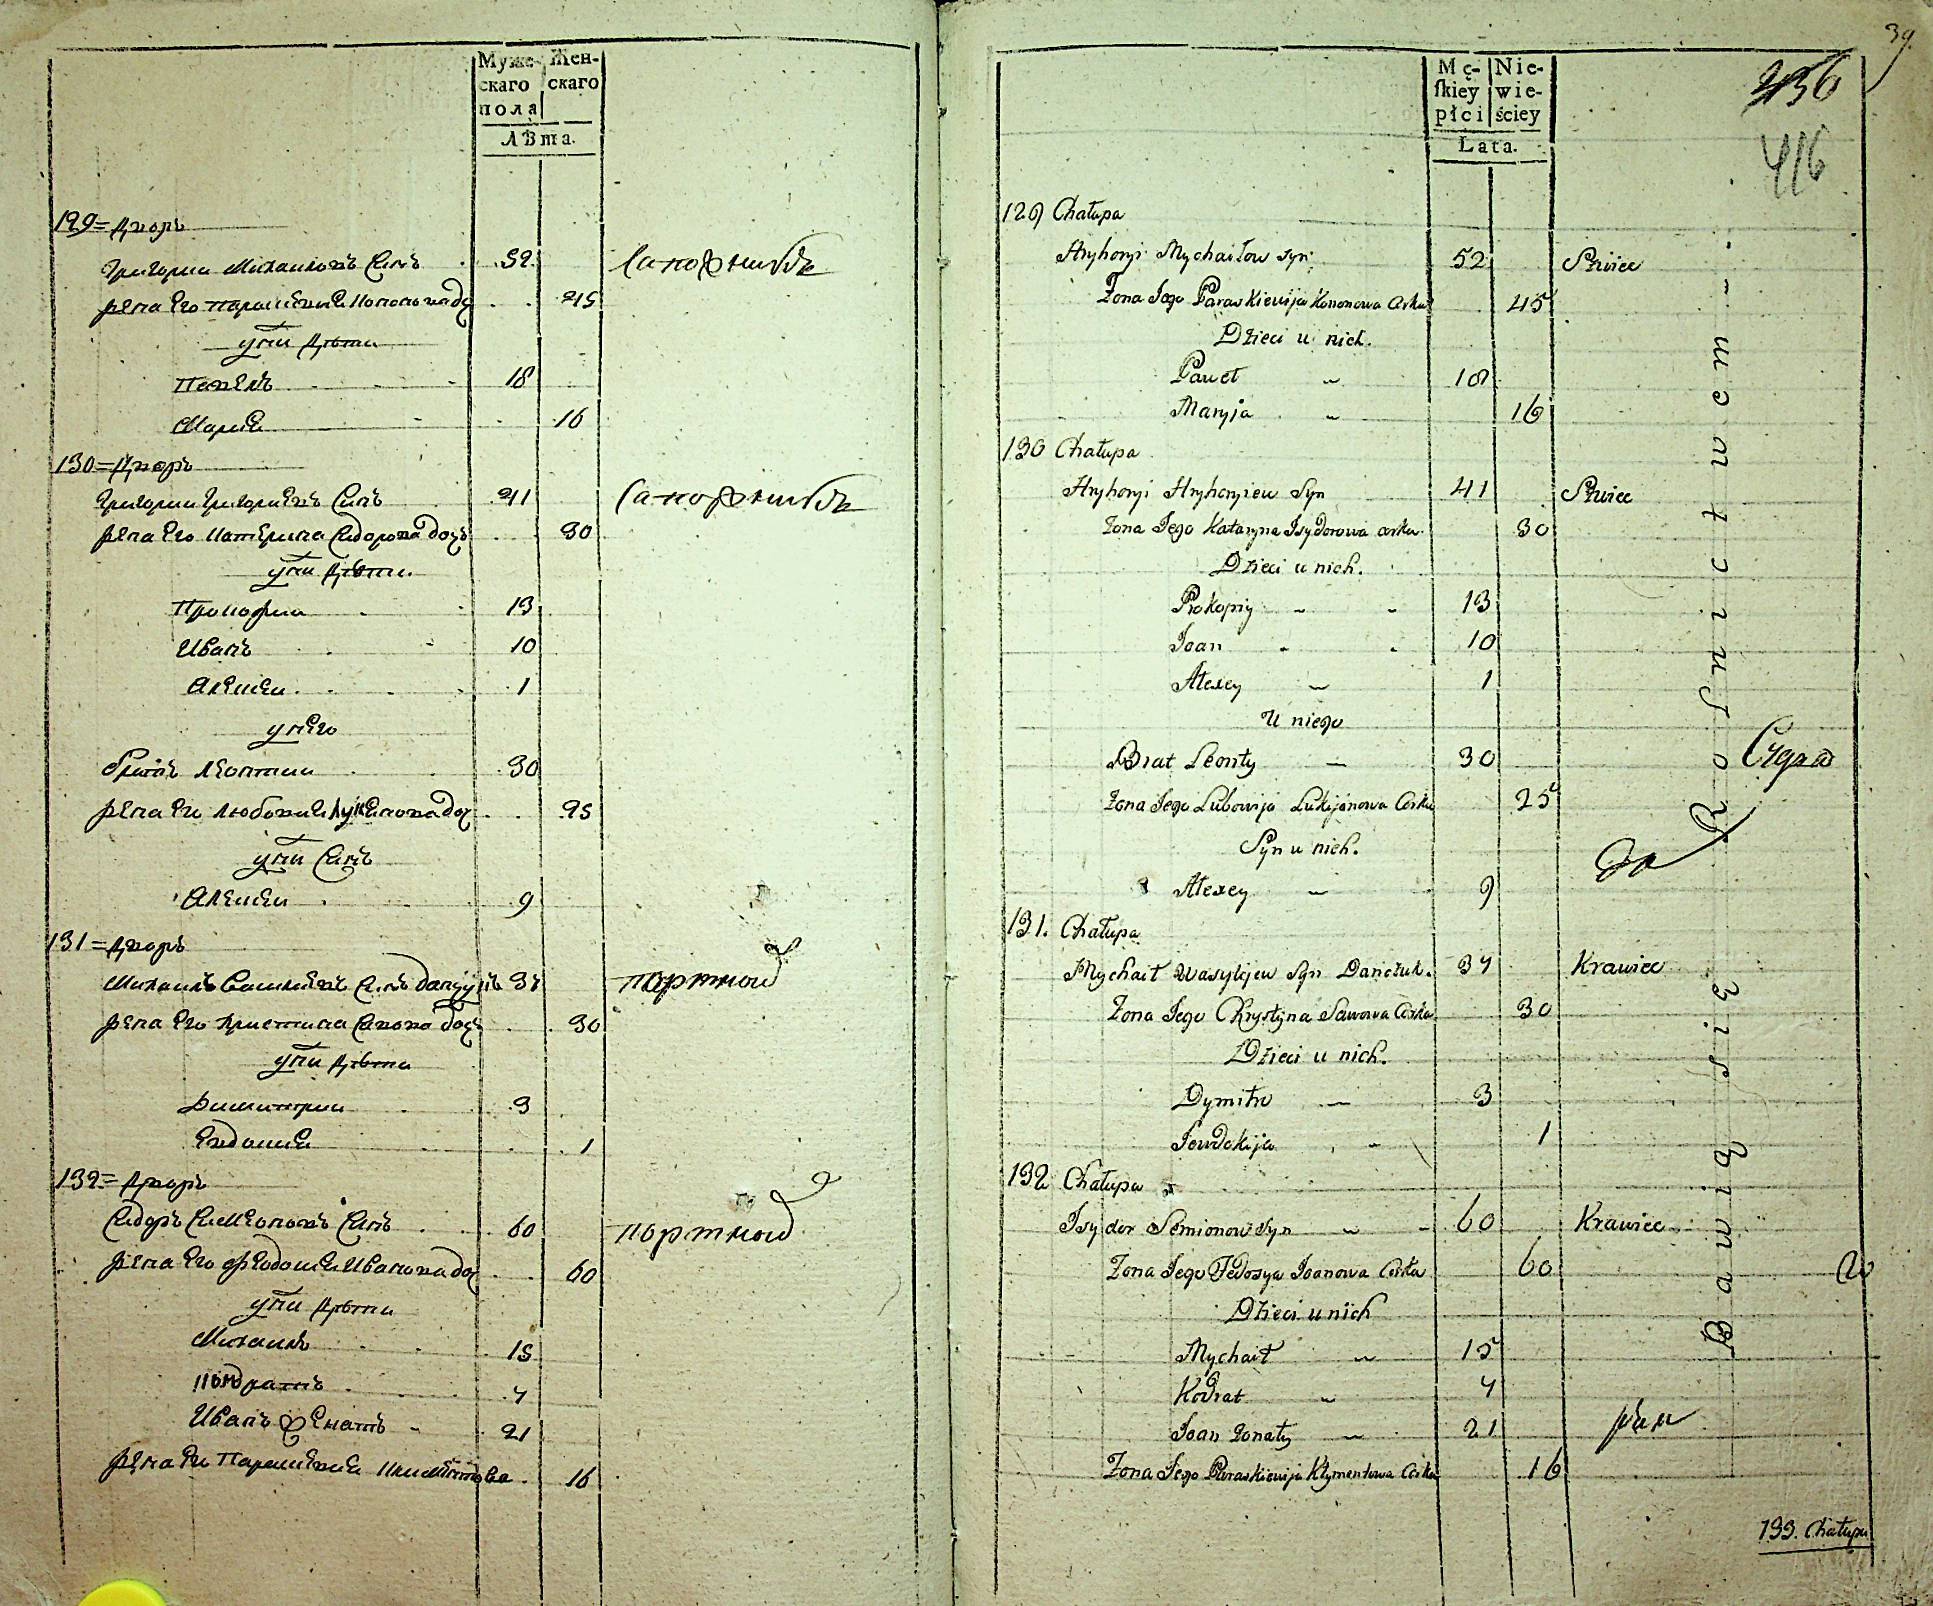 Муже-
скаго
пола
Жен-
скаго
ЛѢта.
129= Дворъ
Григории Михаиловъ Сынъ 52 Сапожникъ
жена Его Параскевия Кононова доч 45
у ни Дѣти
Павелъ 18
Мария 16
130= Дворъ
Григории Григориевъ Сынъ 41 Сапожникъ
жена Его Катерина Сидорова дочь 30
у ни Дѣти
Прокофии 13
Иванъ 10
Алексеи 1
у него
братъ Леонтии 30
жена Ег Любовия Лукянова доч 25
у ни Сынъ
Алексеи 9
131= Дворъ
Михаилъ Василиевъ Сынъ Данчукъ 37 портной
жена Его Кристина Савова дочь 30
у ни Дѣти
Димитрии 3
Евдокия 1
132= Дворъ
Сидоръ Симеоновъ Сынъ 60 портной
жена Его Феодосия Иванова доч 60
у ни Дѣти
Михаилъ 15
Кондратъ 7
Иванъ Женатъ 21
жена Ег Параскевия Климентова 16
39.
Mę-
ſkiey
płci
Nie-
wie-
ściey
Lata.
436
416
129 Chałupa
Hryhoryi Mychaiłow syn 52 Szwiec
Żona Jego Paraskiewija Kononowa Corka 45
Dzieci u nich.
Paweł „ 18
Maryja „ 16
130 Chałupa
Hryhoryi Hryhoryiew Syn 41 Szwiec
Żona Jego Kataryna Isydorowa corka 30
Dzieci u nich.
Prokopiy „ 13
Joan 10
Alexey „ 1
U niego
Brat Leonty — 30
Żona Jego Lubowija Lukijanowa Corka 25
Syn u nich.
Alexey — 9
131. Chałupa
Mychaił Wasylyjew Syn Danczuk. 37 Krawiec
Żona Jego Chrystyna Sawowa Corka 30
Dzieci u nich.
Dymitr — 3
Jewdokija „ 1
132 Chałupa
Isydor Semionow Syn „ 60 Krawiec
Żona Jego Fedosya Joanowa Corka 60
Dzieci u nich
Mychaił „ 15
Kodrat „ 7
Joan Żonaty „ 21
Żona Jego Paraskiewija Klymentowa Corka 16
Bawią się Rolnictwem
133. Chałupa